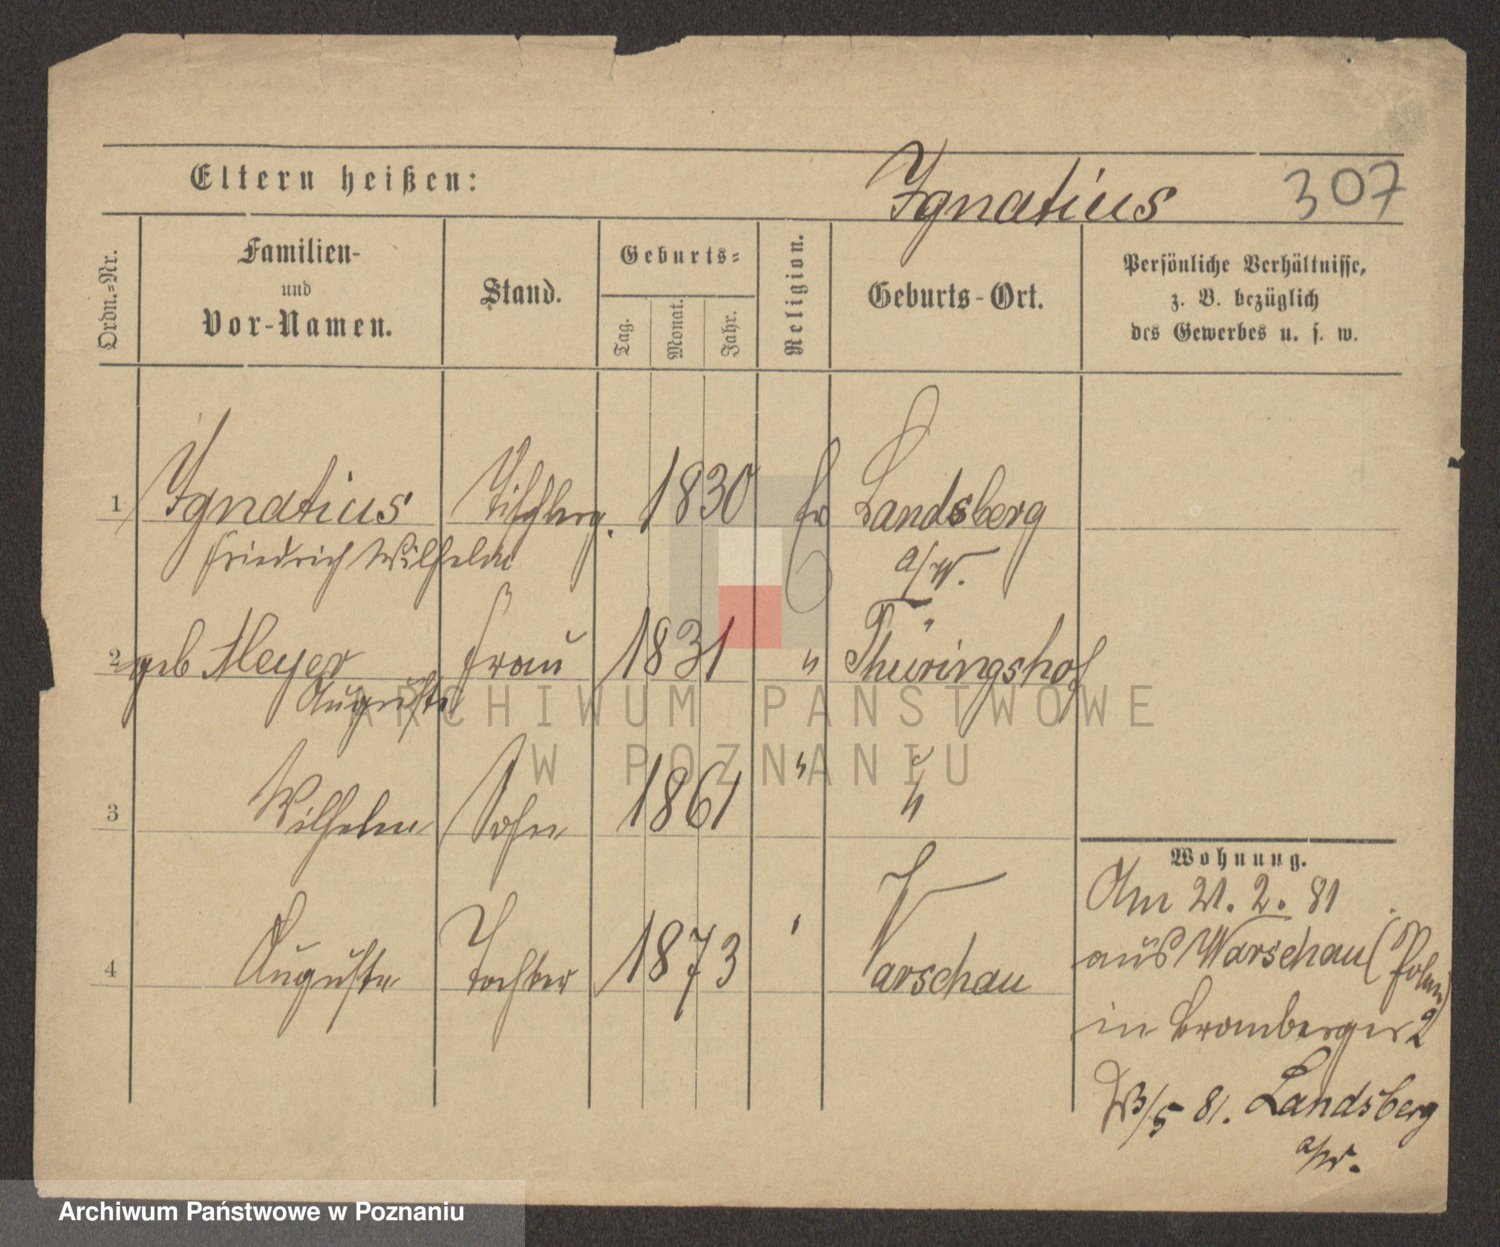 Eltern heißen:
Ignatius 307
Ordn.=Nr.
Familien-
und
Vor-Namen.
Stand.
Geburts=
Tag.
Monat.
Jahr.
Religion.
Geburts-Ort.
Persönliche Verhältnisse,
z. B. bezüglich
des Gewerbes u. s. w.
1 Ignatius 1830 Landsberg
Friedrich Wilhelm a/W.
2 geb Meyer Frau 1831 " Thüringshof
Auguste
3 Wilhelm Sohn 1861 " "
4 Auguste Tochter 1873 ' Warschau
Wohnung.
Am 21. 2. 81
aus Warschau (Polen)
in Bromberger 2
/5 81. Landsberg
a/W.
ARCHIWUM PAŃSTWOWE
W POZNANIU
Archiwum Państwowe w Poznaniu